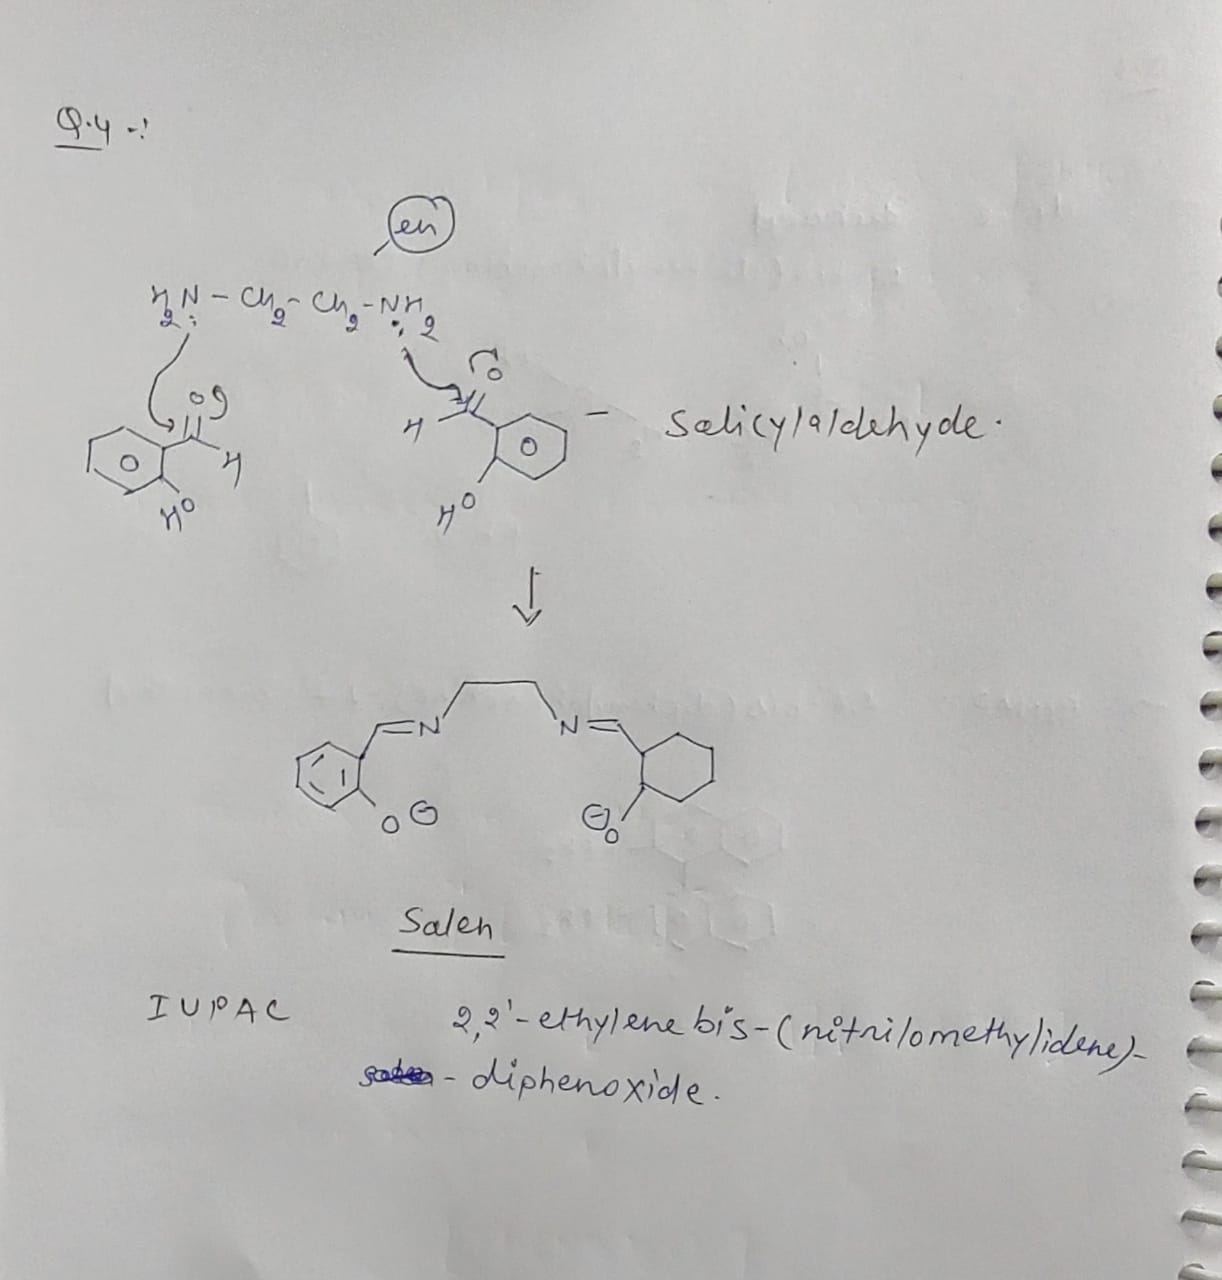 Q.4 -:
en
H2N - CH2 - CH2 - NH2
O O
H - Salicylaldehyde.
H
HO HO
N N
O ⊖ ⊖ O
Salen
IUPAC 2,2'-ethylene bis-(nitrilomethylidene)-
- diphenoxide.